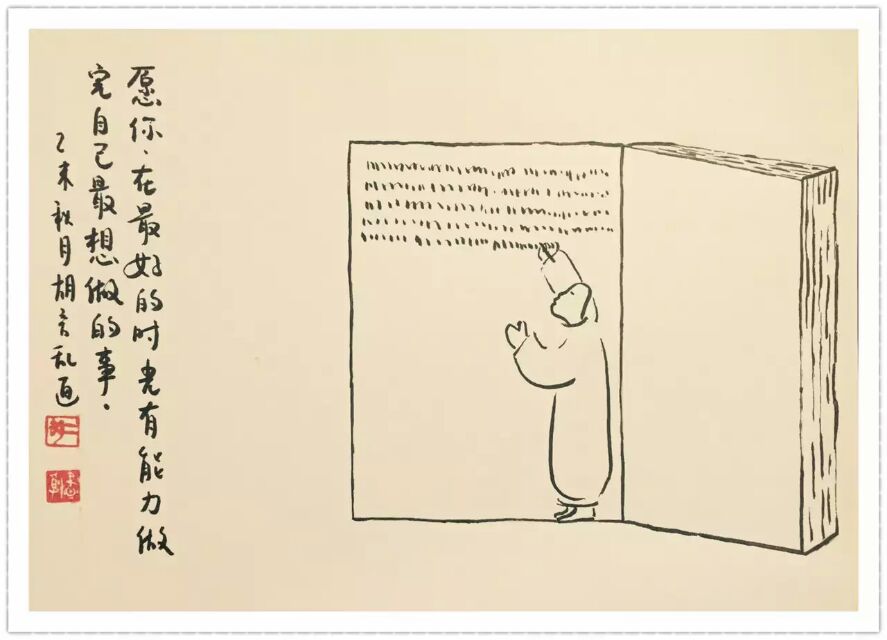 愿你、在最好的时光有能力做
完自己最想做的事、
乙未秋月胡言乱道